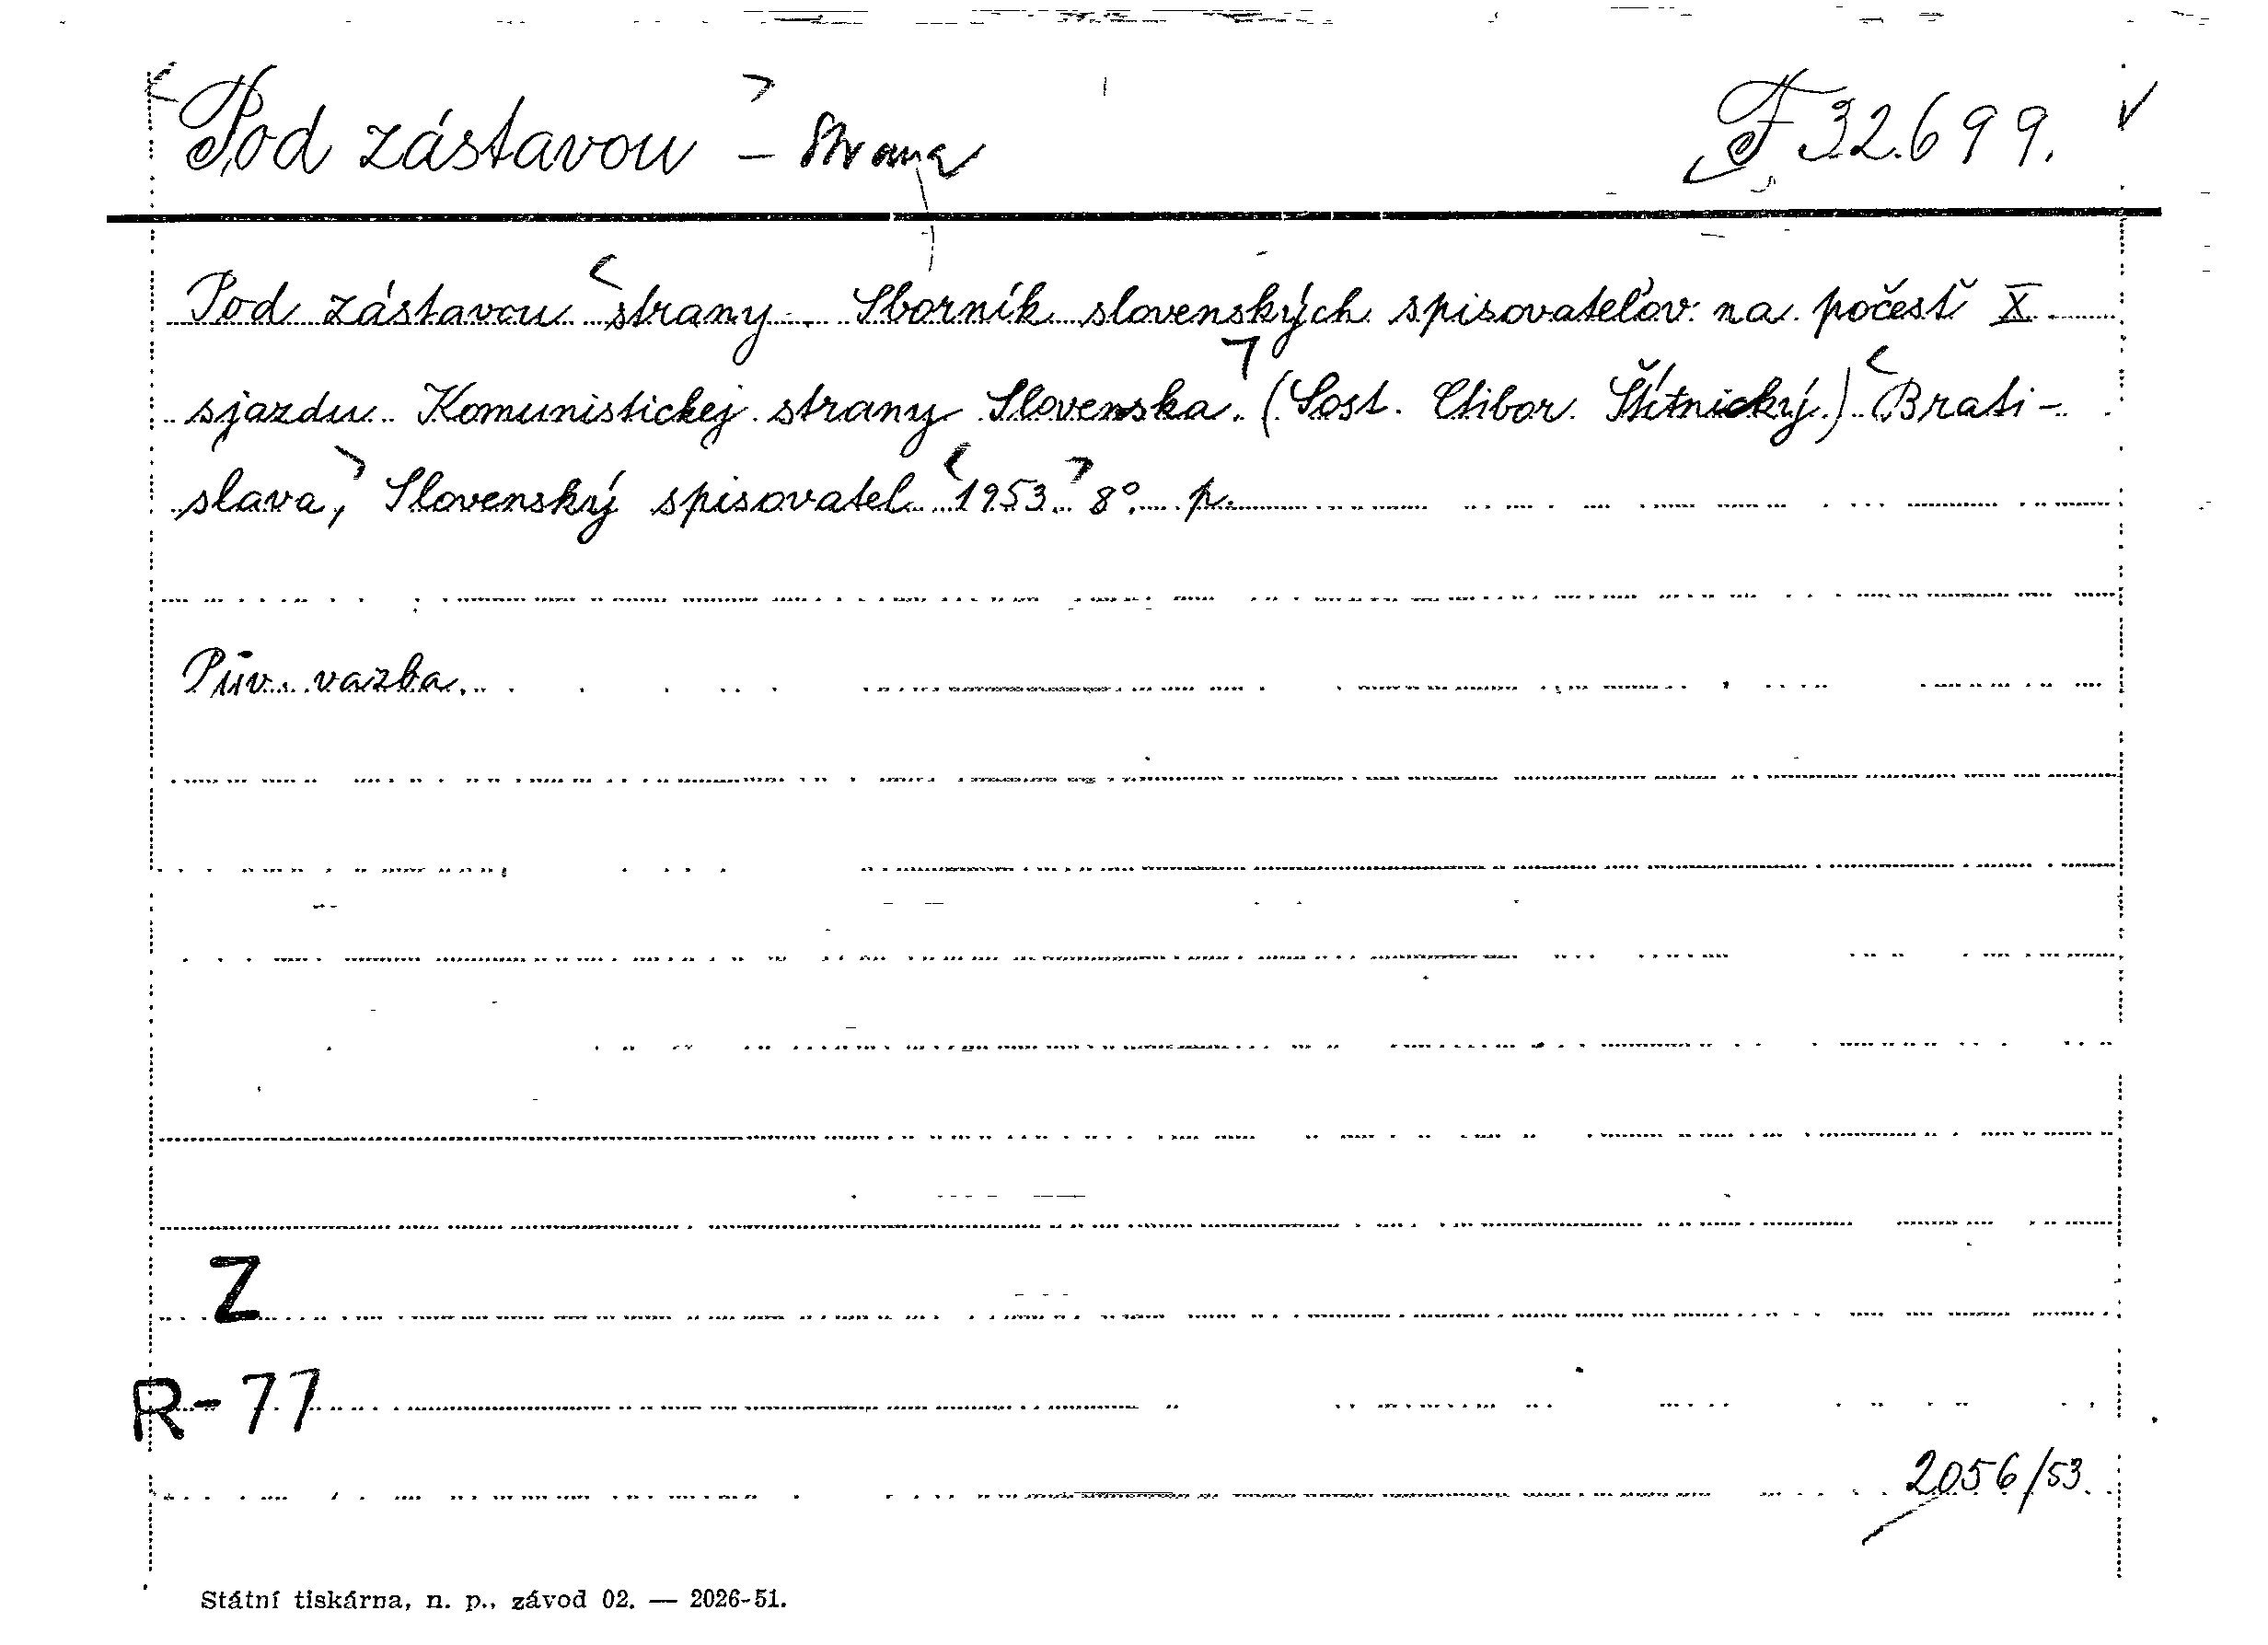 Pod zástavou - Strana F 32.699.
Pod zástavou strany. Sborník slovenských spisovateľov na počesť X.
sjazdu Komunistickej strany Slovenska. (Sost. Ctibor Štítnický.) Brati-
slava, Slovenský spisovatel 1953. 8°. p.
Pův. vazba.
Z
R-77
2056/53.
Státní tiskárna, n. p., závod 02. — 2026-51.